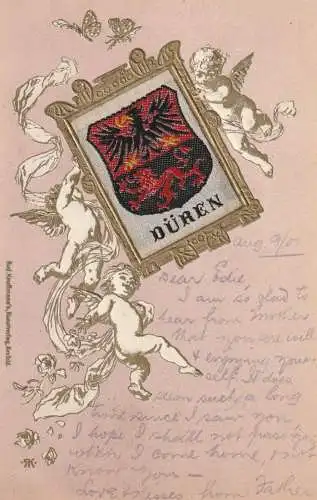 DÜREN
Aug 9/01
Dear Edie,
I am so glad to
hear from Mother
that you are well
& enjoying your
self. It does
seem such a long
time since I saw you
I hope I shall not pass you
when I come home, & not
know you —
Love & kisses from Father
Rud. Kauffmann's, Kunstverlag, Krefeld.